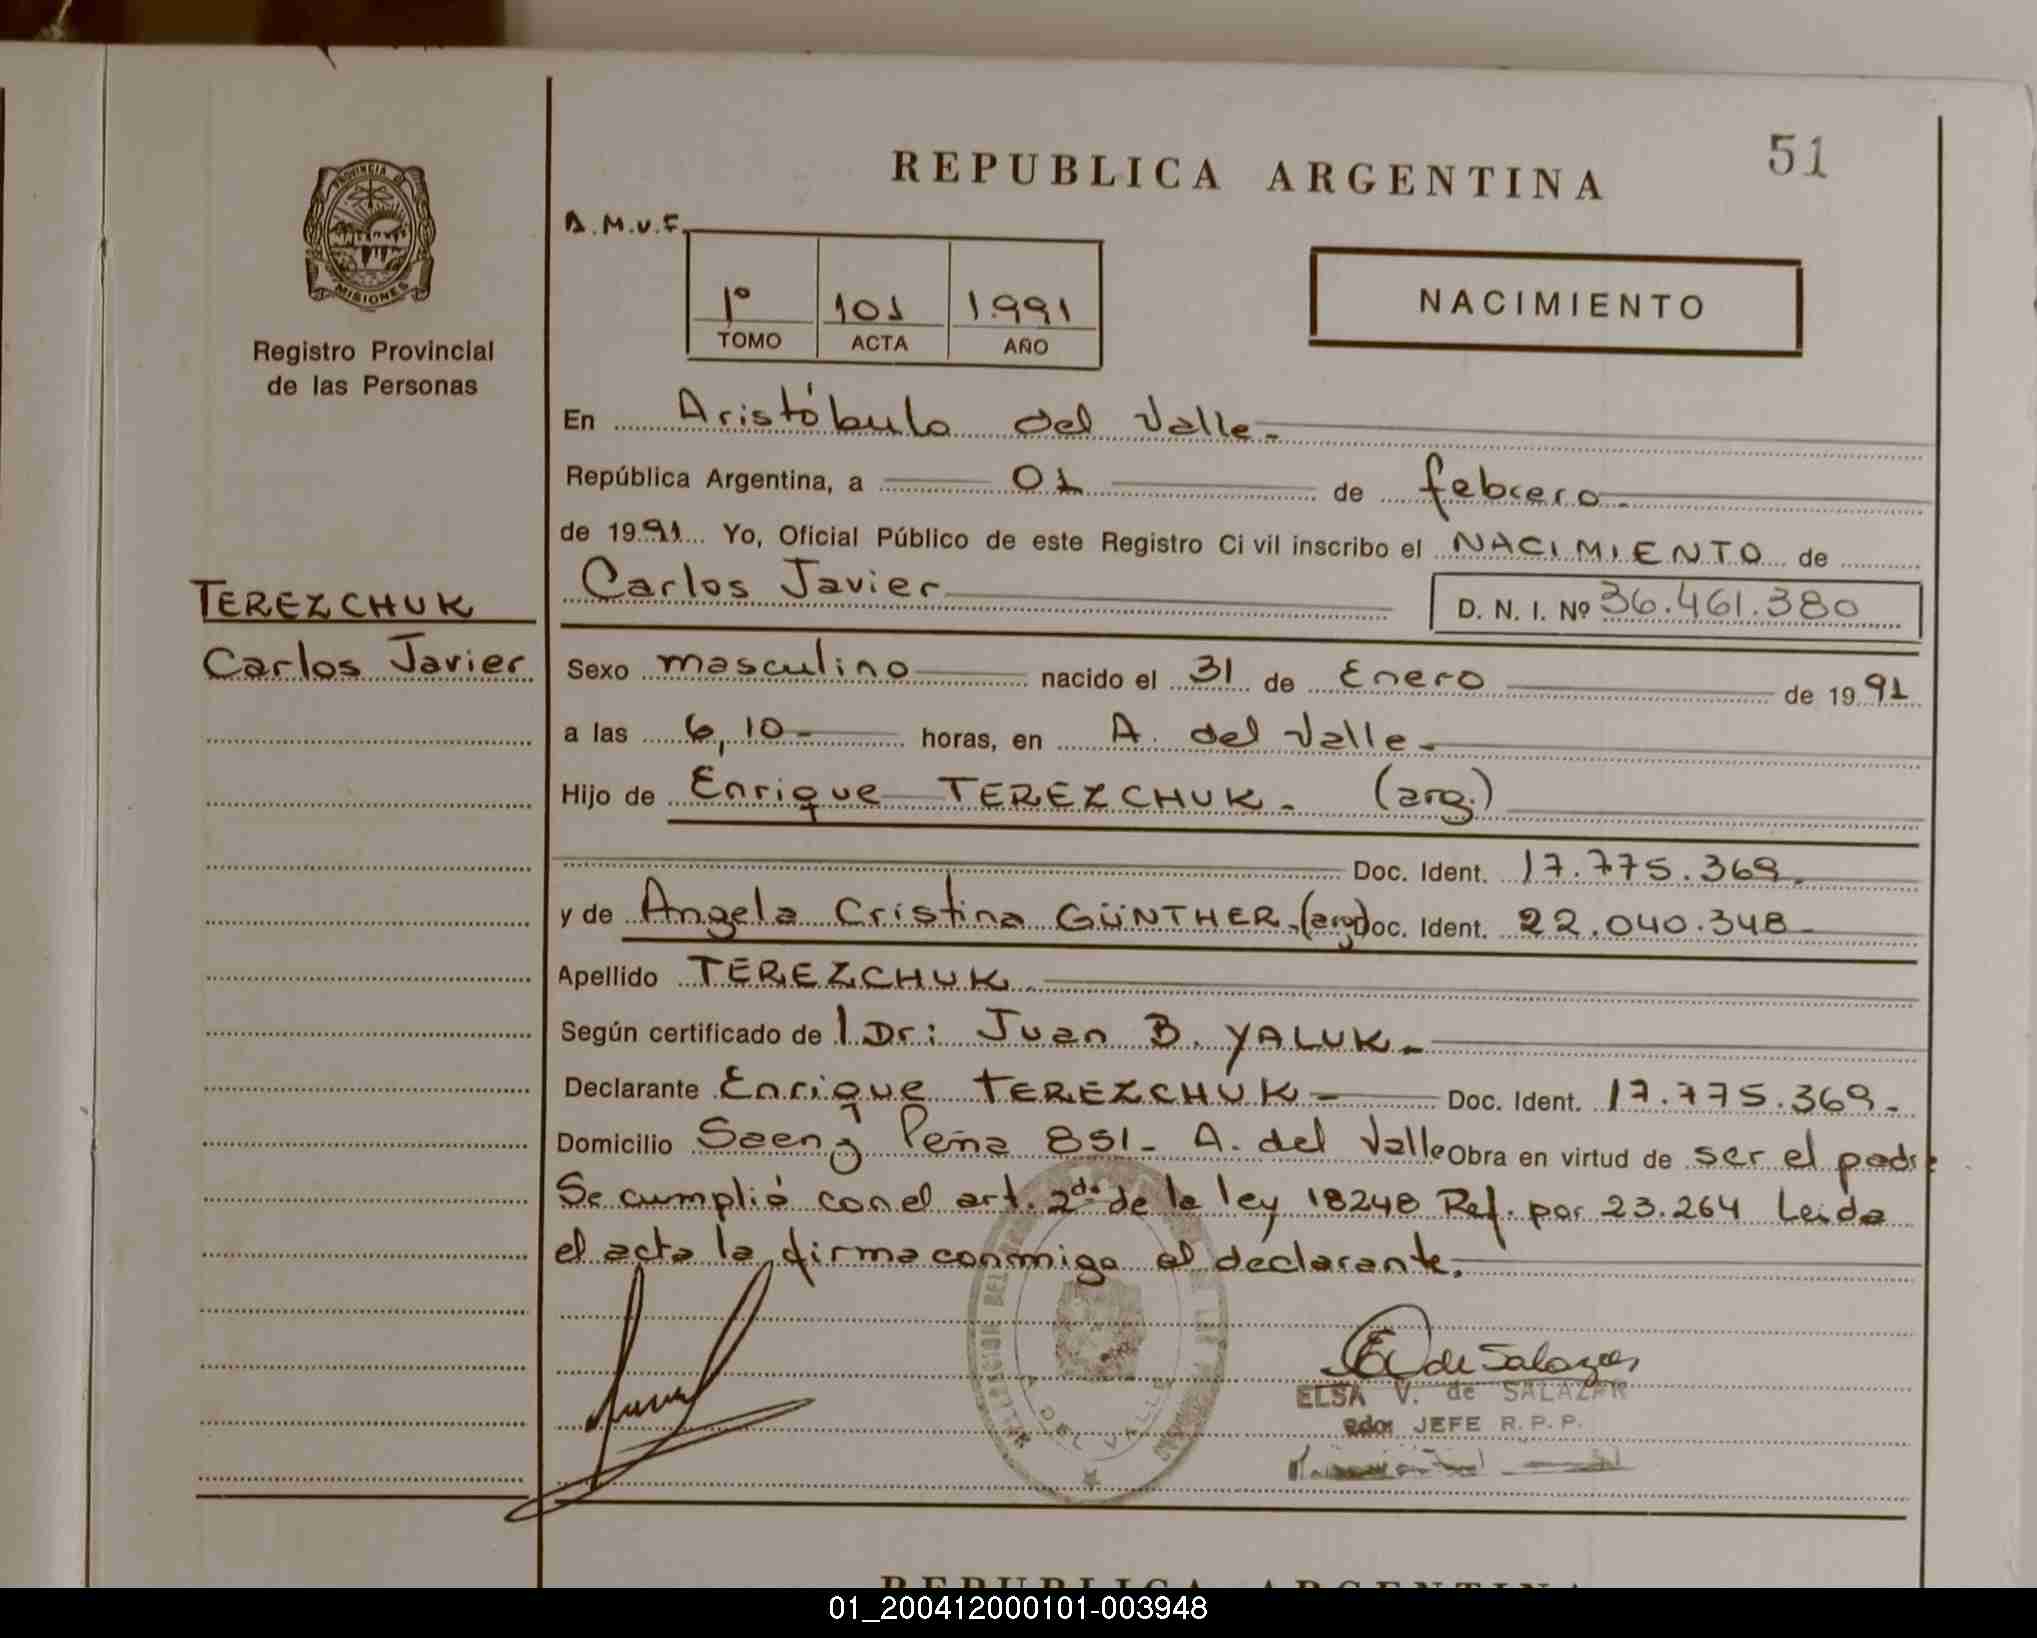 51
REPUBLICA ARGENTINA
PROVINCIA DE
MISIONES
Registro Provincial
de las Personas
A.M.V.F.
1º 101 1.991
TOMO ACTA AÑO
NACIMIENTO
En Aristóbulo del Valle.-
República Argentina, a 01 de febrero.-
de 1991 Yo, Oficial Público de este Registro Civil inscribo el NACIMIENTO de
Carlos Javier D. N. I. Nº 36.461.380
TEREZCHUK
Carlos Javier
Sexo masculino nacido el 31 de Enero de 1991
a las 6,10- horas, en A. del Valle.-
Hijo de Enrique TEREZCHUK.- (arg.)
Doc. Ident. 17.775.369.-
y de Angela Cristina GÜNTHER.(arg) Doc. Ident. 22.040.348-
Apellido TEREZCHUK.
Según certificado de l Dr: Juan B. YALUK.-
Declarante Enrique TEREZCHUK- Doc. Ident. 17.775.369.-
Domicilio Saenz Peña 851- A. del Valle Obra en virtud de ser el padre
Se cumplió con el art. 2do de la ley 18248 Ref. por 23.264 Leida
el acta la firma conmigo el declarante.
A. DEL VALLE
E V de Salazar
ELSA V. de SALAZAR
JEFE R. P. P.
REPUBLICA ARGENTINA
01_200412000101-003948